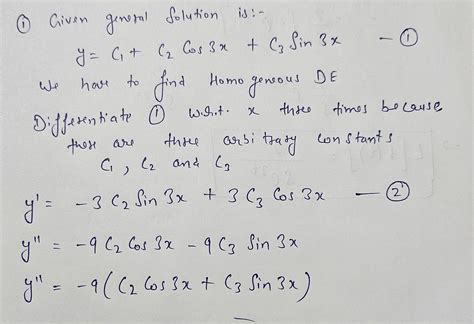 ① Given general Solution is:-
y = C₁ + C₂ Cos 3x + C₃ Sin 3x — ①
We have to find Homogeneous DE
Differentiate ① w.r.t. x three times because
there are three arbitrary constants
C₁, C₂ and C₃
y' = -3 C₂ Sin 3x + 3 C₃ Cos 3x — ②
y'' = -9 C₂ Cos 3x - 9 C₃ Sin 3x
y'' = -9 (C₂ Cos 3x + C₃ Sin 3x)